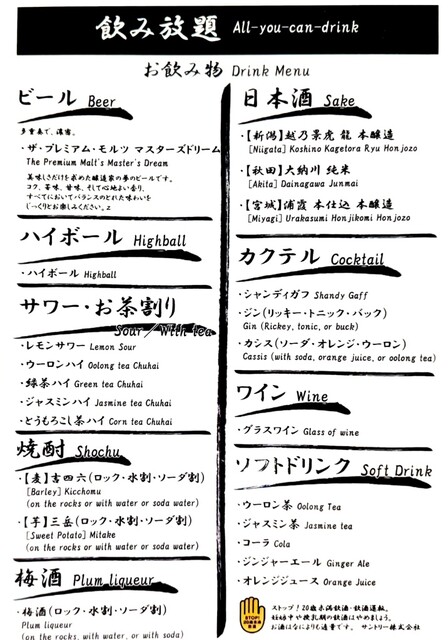 飲み放題 All-you-can-drink
お飲み物 Drink Menu
ビール Beer
多重奏で、濃密。
・ザ・プレミアム・モルツ マスターズドリーム
The Premium Malt's Master's Dream
美味しさだけを求めた醸造家の夢のビールです。
コク、苦味、甘味、そして心地よい香り。
すべてにおいてバランスのとれた味わいを
じっくりとお楽しみください。
ハイボール Highball
・ハイボール Highball
サワー・お茶割り
Sour／With tea
・レモンサワー Lemon Sour
・ウーロンハイ Oolong tea Chuhai
・緑茶ハイ Green tea Chuhai
・ジャスミンハイ Jasmine tea Chuhai
・とうもろこし茶ハイ Corn tea Chuhai
焼酎 Shochu
・【麦】吉四六（ロック・水割・ソーダ割）
[Barley] Kicchomu
(on the rocks or with water or soda water)
・【芋】三岳（ロック・水割・ソーダ割）
[Sweet Potato] Mitake
(on the rocks or with water or soda water)
梅酒 Plum liqueur
・梅酒（ロック・水割・ソーダ割）
Plum liqueur
(on the rocks, with water, or with soda)
日本酒 Sake
・【新潟】越乃景虎 龍 本醸造
[Niigata] Koshino Kagetora Ryu Honjozo
・【秋田】大納川 純米
[Akita] Dainagawa Junmai
・【宮城】浦霞 本仕込 本醸造
[Miyagi] Urakasumi Honjikomi Honjozo
カクテル Cocktail
・シャンディガフ Shandy Gaff
・ジン（リッキー・トニック・バック）
Gin (Rickey, tonic, or buck)
・カシス（ソーダ・オレンジ・ウーロン）
Cassis (with soda, orange juice, or oolong tea)
ワイン Wine
・グラスワイン Glass of wine
ソフトドリンク Soft Drink
・ウーロン茶 Oolong Tea
・ジャスミン茶 Jasmine tea
・コーラ Cola
・ジンジャーエール Ginger Ale
・オレンジジュース Orange Juice
ストップ！20歳未満飲酒・飲酒運転。
妊娠中や授乳期の飲酒はやめましょう。
お酒はなによりも適量です。 サントリー株式会社